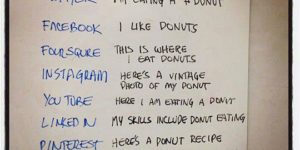 I'M EATING A # DONUT
FACEBOOK I LIKE DONUTS
FOURSQURE THIS IS WHERE
I EAT DONUTS
INSTAGRAM HERE'S A VINTAGE
PHOTO OF MY DONUT
YOU TUBE HERE I AM EATING A DONUT
LINKED IN MY SKILLS INCLUDE DONUT EATING
PINTEREST HERE'S A DONUT RECIPE